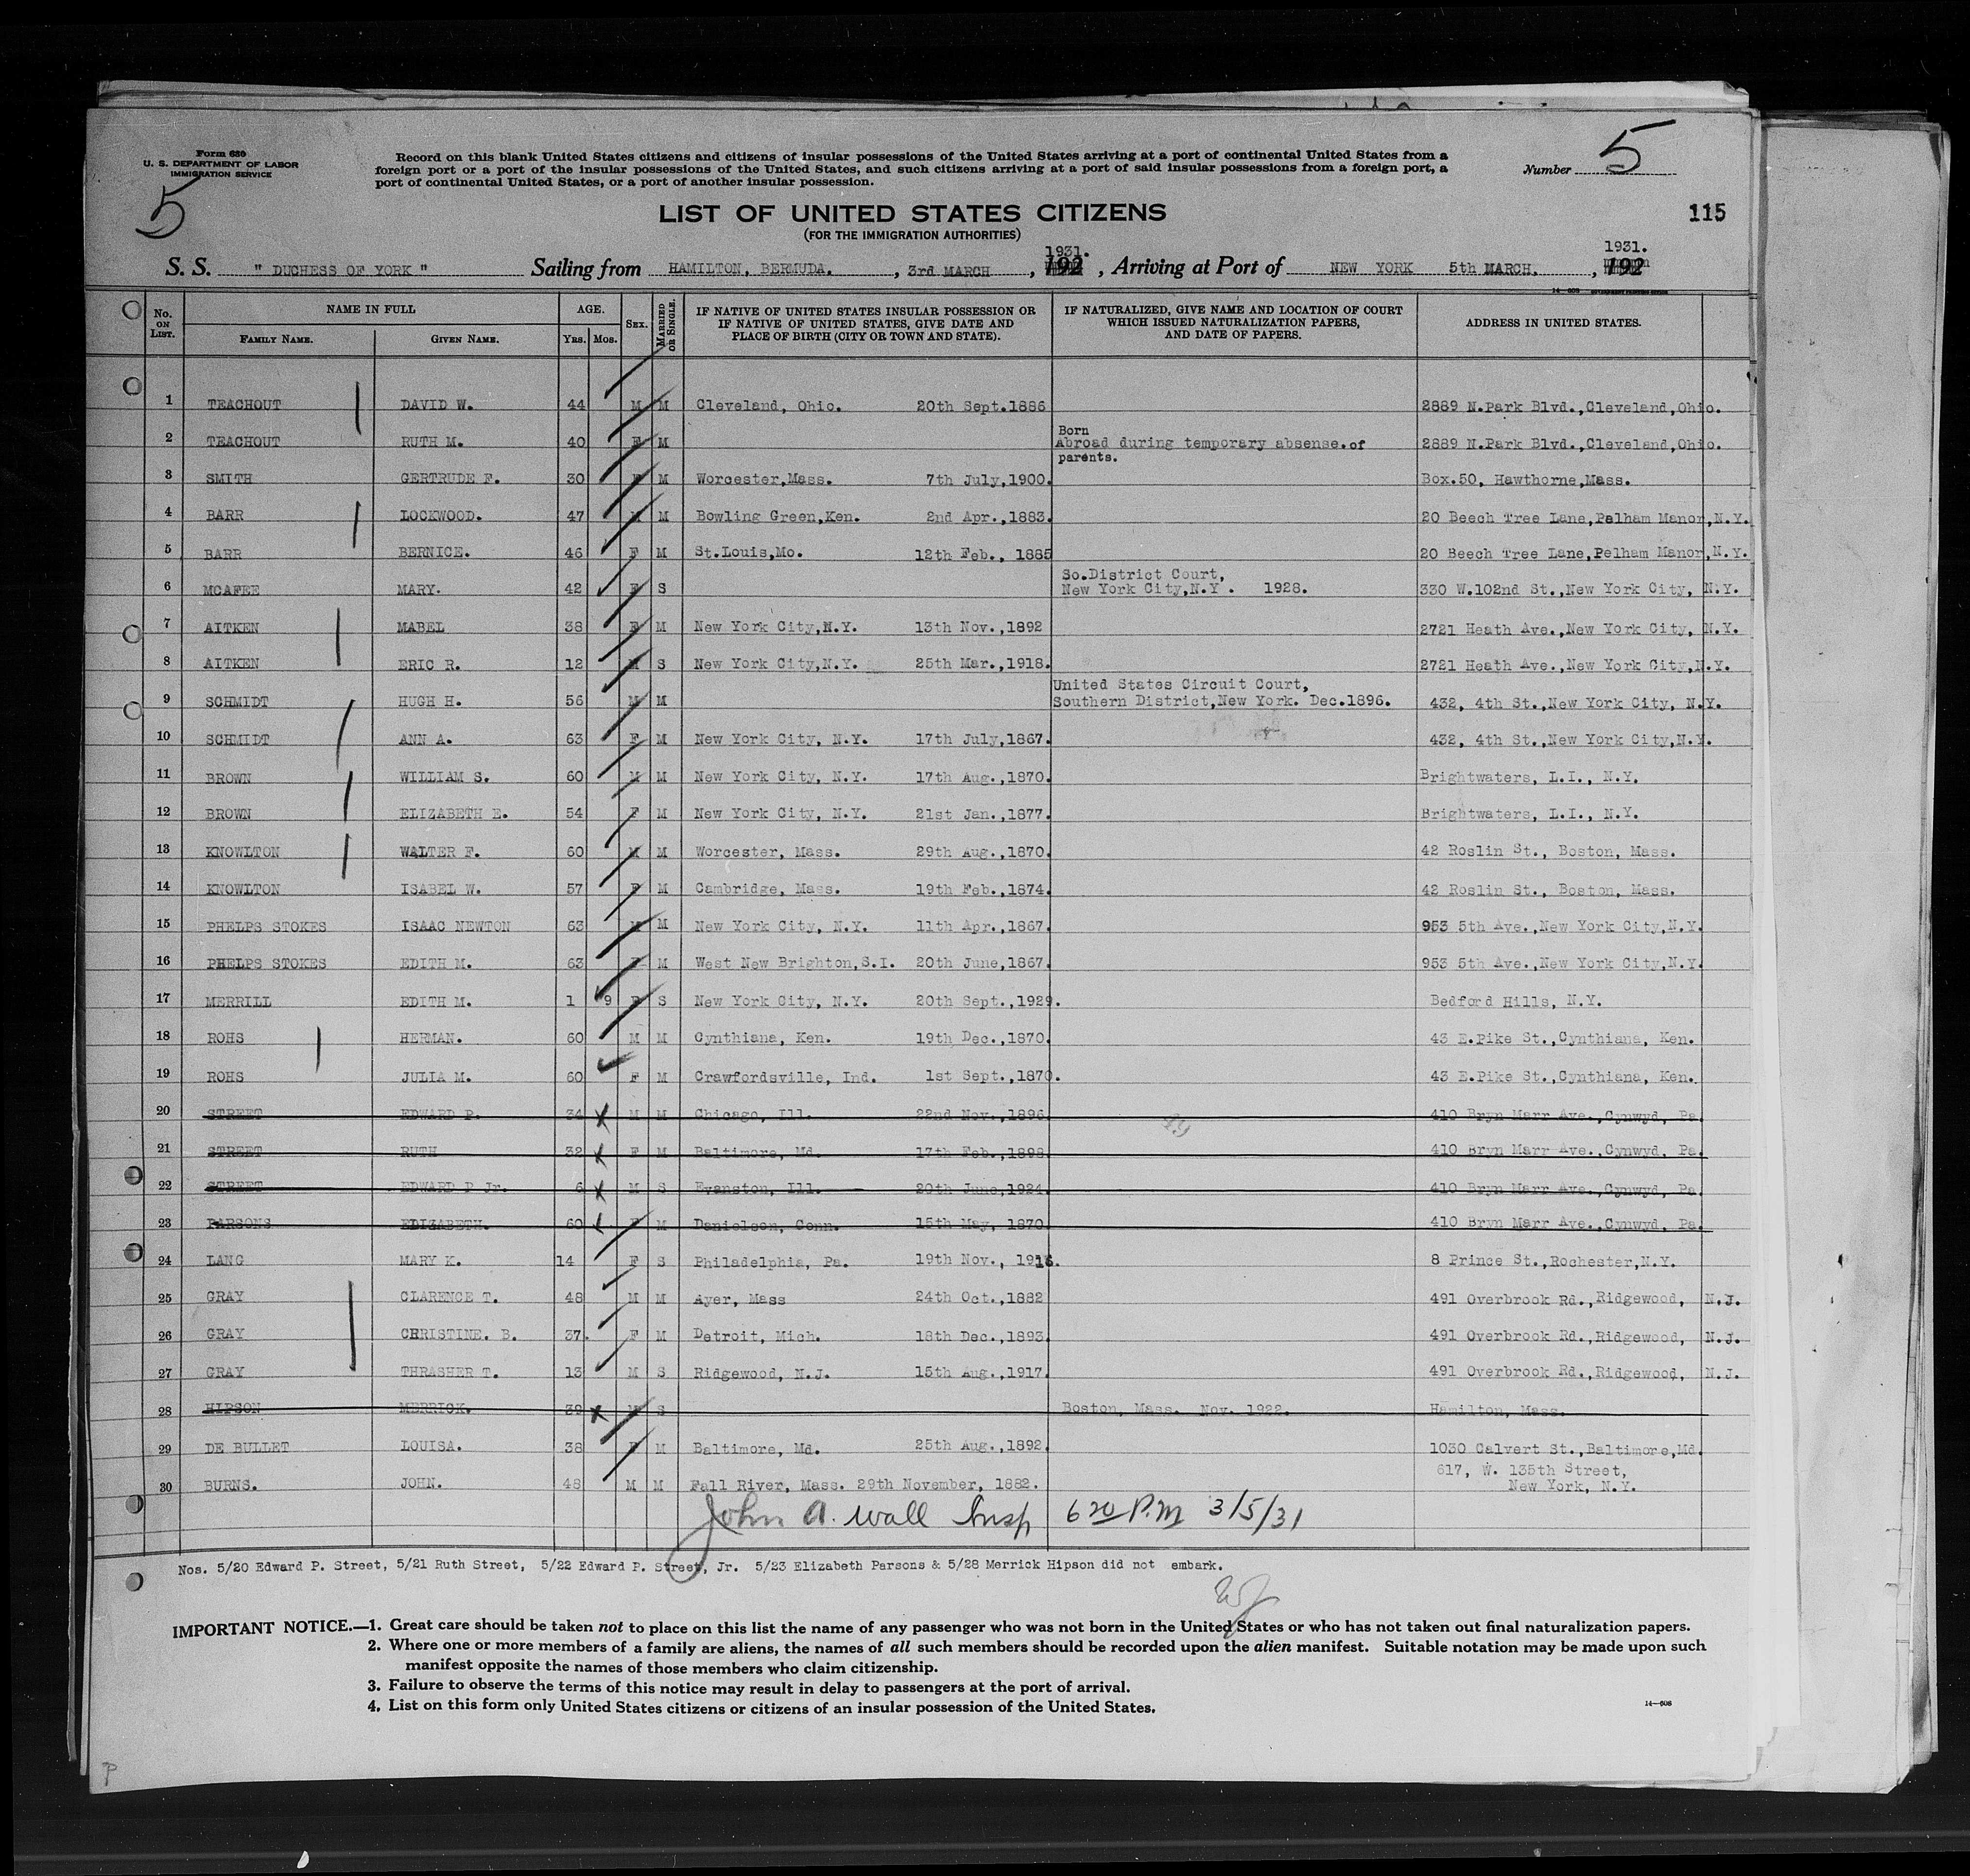 Form 630
U. S. DEPARTMENT OF LABOR
IMMIGRATION SERVICE
5
Record on this blank United States citizens and citizens of insular possessions of the United States arriving at a port of continental United States from a
foreign port or a port of the insular possessions of the United States, and such citizens arriving at a port of said insular possessions from a foreign port, a
port of continental United States, or a port of another insular possession.
Number 5
LIST OF UNITED STATES CITIZENS
115
(FOR THE IMMIGRATION AUTHORITIES)
S. S. " DUCHESS OF YORK " Sailing from HAMILTON, BERMUDA. , 3rd MARCH , 1931. 192 , Arriving at Port of NEW YORK 5th MARCH. , 1931. 192
No. ON LIST. NAME IN FULL AGE. SEX. MARRIED OR SINGLE. IF NATIVE OF UNITED STATES INSULAR POSSESSION OR IF NATIVE OF UNITED STATES, GIVE DATE AND PLACE OF BIRTH (CITY OR TOWN AND STATE). IF NATURALIZED, GIVE NAME AND LOCATION OF COURT WHICH ISSUED NATURALIZATION PAPERS, AND DATE OF PAPERS. ADDRESS IN UNITED STATES.
FAMILY NAME. GIVEN NAME. YRS. MOS.
1 TEACHOUT DAVID W. 44 M M Cleveland, Ohio. 20th Sept.1886 2889 N.Park Blvd.,Cleveland,Ohio.
2 TEACHOUT RUTH M. 40 F M Born Abroad during temporary absense.of parents. 2889 N.Park Blvd.,Cleveland,Ohio.
3 SMITH GERTRUDE F. 30 F M Worcester,Mass. 7th July,1900. Box.50, Hawthorne,Mass.
4 BARR LOCKWOOD. 47 M M Bowling Green,Ken. 2nd Apr.,1883. 20 Beech Tree Lane,Pelham Manor,N.Y.
5 BARR BERNICE. 46 F M St.Louis,Mo. 12th Feb., 1885 20 Beech Tree Lane,Pelham Manor,N.Y.
6 MCAFEE MARY. 42 F S So.District Court, New York City,N.Y. 1928. 330 W.102nd St.,New York City, N.Y.
7 AITKEN MABEL 38 F M New York City,N.Y. 13th Nov.,1892 2721 Heath Ave.,New York City, N.Y.
8 AITKEN ERIC R. 12 M S New York City,N.Y. 25th Mar.,1918. 2721 Heath Ave.,New York City,N.Y.
9 SCHMIDT HUGH H. 56 M M United States Circuit Court, Southern District,New York. Dec.1896. 432, 4th St.,New York City, N.Y.
10 SCHMIDT ANN A. 63 F M New York City, N.Y. 17th July,1867. 432, 4th St.,New York City,N.Y.
11 BROWN WILLIAM S. 60 M M New York City, N.Y. 17th Aug.,1870. Brightwaters, L.I., N.Y.
12 BROWN ELIZABETH E. 54 F M New York City, N.Y. 21st Jan.,1877. Brightwaters, L.I., N.Y.
13 KNOWLTON WALTER F. 60 M M Worcester, Mass. 29th Aug.,1870. 42 Roslin St., Boston, Mass.
14 KNOWLTON ISABEL W. 57 F M Cambridge, Mass. 19th Feb.,1874. 42 Roslin St., Boston, Mass.
15 PHELPS STOKES ISAAC NEWTON 63 M M New York City, N.Y. 11th Apr.,1867. 953 5th Ave.,New York City,N.Y.
16 PHELPS STOKES EDITH M. 63 F M West New Brighton,S.I. 20th June,1867. 953 5th Ave.,New York City,N.Y.
17 MERRILL EDITH M. 1 9 F S New York City, N.Y. 20th Sept.,1929. Bedford Hills, N.Y.
18 ROHS HERMAN. 60 M M Cynthiana, Ken. 19th Dec.,1870. 43 E.Pike St.,Cynthiana, Ken.
19 ROHS JULIA M. 60 F M Crawfordsville, Ind. 1st Sept.,1870. 43 E.Pike St.,Cynthiana, Ken.
20 STREET EDWARD P. 34 M M Chicago, Ill. 22nd Nov.,1896 410 Bryn Marr Ave.,Cynwyd, Pa.
21 STREET RUTH 32 F M Baltimore, Md. 17th Feb.,1898 410 Bryn Marr Ave.,Cynwyd, Pa.
22 STREET EDWARD P Jr. 6 M S Evanston, Ill. 20th June,1924. 410 Bryn Marr Ave.,Cynwyd, Pa.
23 PARSONS ELIZABETH. 60 F M Danielson, Conn. 15th May, 1870. 410 Bryn Marr Ave.,Cynwyd, Pa.
24 LANG MARY K. 14 F S Philadelphia, Pa. 19th Nov., 1916. 8 Prince St.,Rochester,N.Y.
25 GRAY CLARENCE T. 48 M M Ayer, Mass 24th Oct.,1882 491 Overbrook Rd.,Ridgewood, N.J.
26 GRAY CHRISTINE. B. 37. F M Detroit, Mich. 18th Dec.,1893. 491 Overbrook Rd.,Ridgewood, N.J.
27 GRAY THRASHER T. 13 M S Ridgewood, N.J. 15th Aug.,1917. 491 Overbrook Rd.,Ridgewood, N.J.
28 HIPSON MERRICK. 39 M S Boston, Mass. Nov. 1922. Hamilton, Mass.
29 DE BULLET LOUISA. 38 F M Baltimore, Md. 25th Aug.,1892. 1030 Calvert St.,Baltimore,Md.
30 BURNS. JOHN. 48 M M Fall River, Mass. 29th November, 1882. 617, W. 135th Street, New York, N.Y.
John A. Wall Insp 6 20 P.M 3/5/31
Nos. 5/20 Edward P. Street, 5/21 Ruth Street, 5/22 Edward P. Street, Jr. 5/23 Elizabeth Parsons & 5/28 Merrick Hipson did not embark.
IMPORTANT NOTICE.—1. Great care should be taken not to place on this list the name of any passenger who was not born in the United States or who has not taken out final naturalization papers.
2. Where one or more members of a family are aliens, the names of all such members should be recorded upon the alien manifest. Suitable notation may be made upon such
manifest opposite the names of those members who claim citizenship.
3. Failure to observe the terms of this notice may result in delay to passengers at the port of arrival.
4. List on this form only United States citizens or citizens of an insular possession of the United States.
14—608